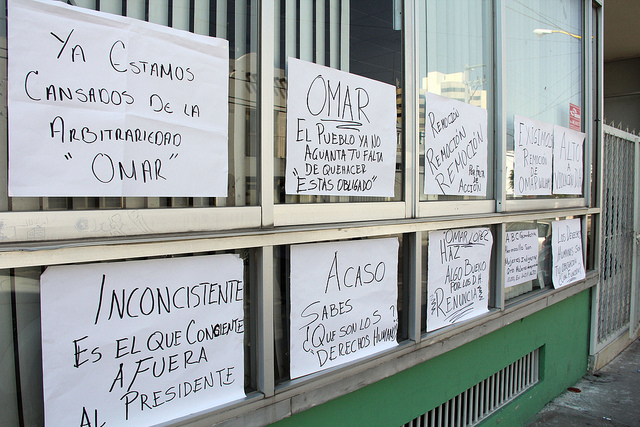 YA ESTAMOS
CANSADOS DE LA
ARBITRARIEDAD
"OMAR"
OMAR
EL PUEBLO YA NO
AGUANTA TU FALTA
DE QUEHACER
"ESTAS OBLIGADO"
REMOCIÓN
REMOCIÓN
REMOCIÓN
POR FALTA
ACCIÓN
EXIGIMOS
REMOCION
DE
OMAR
ALTO
INCONCISTENTE
ES EL QUE CONCIENTE
A FUERA
AL PRESIDENTE
ACASO
SABES
¿QUE SON LOS ?
"DERECHOS HUMANOS
OMAR LOPEZ
HAZ
ALGO BUENO
POR LOS D.H
RENUNCIA
ABC
LOS DERECHOS
HUMANOS SON